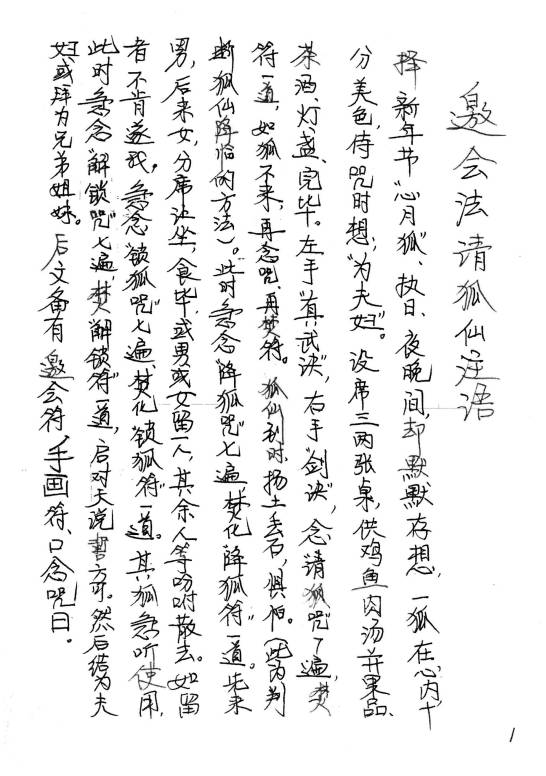 邀会法请狐仙注语
择新年节“心月狐”、执日、夜晚间,却默默存想,一狐在心内,十
分美色,侍咒时想,“为夫妇”。设席三两张桌,供鸡鱼肉汤并果品、
茶酒、灯、盏、完毕。左手“真武决”,右手“剑决”,念“请狐咒”7遍,焚
符一道,如狐不来,再念咒、再焚符。狐仙到时,扬土丢石,惧怕。(此为判
断狐仙降临的方法)。此时急念“降狐咒”七遍,焚化“降狐符”一道。先来
男,后来女,分席让坐,食毕,或男或女留一人,其余人等吩咐散去。如留
者不肯遂我。急念“锁狐咒”七遍、焚化“锁狐符”一道。其狐急听使用,
此时急念“解锁咒”七遍焚“解锁符”一道,后对天说誓方可。然后结为夫
妇或拜为兄弟姐妹。后文备有邀会符,手画符、口念咒曰。
1